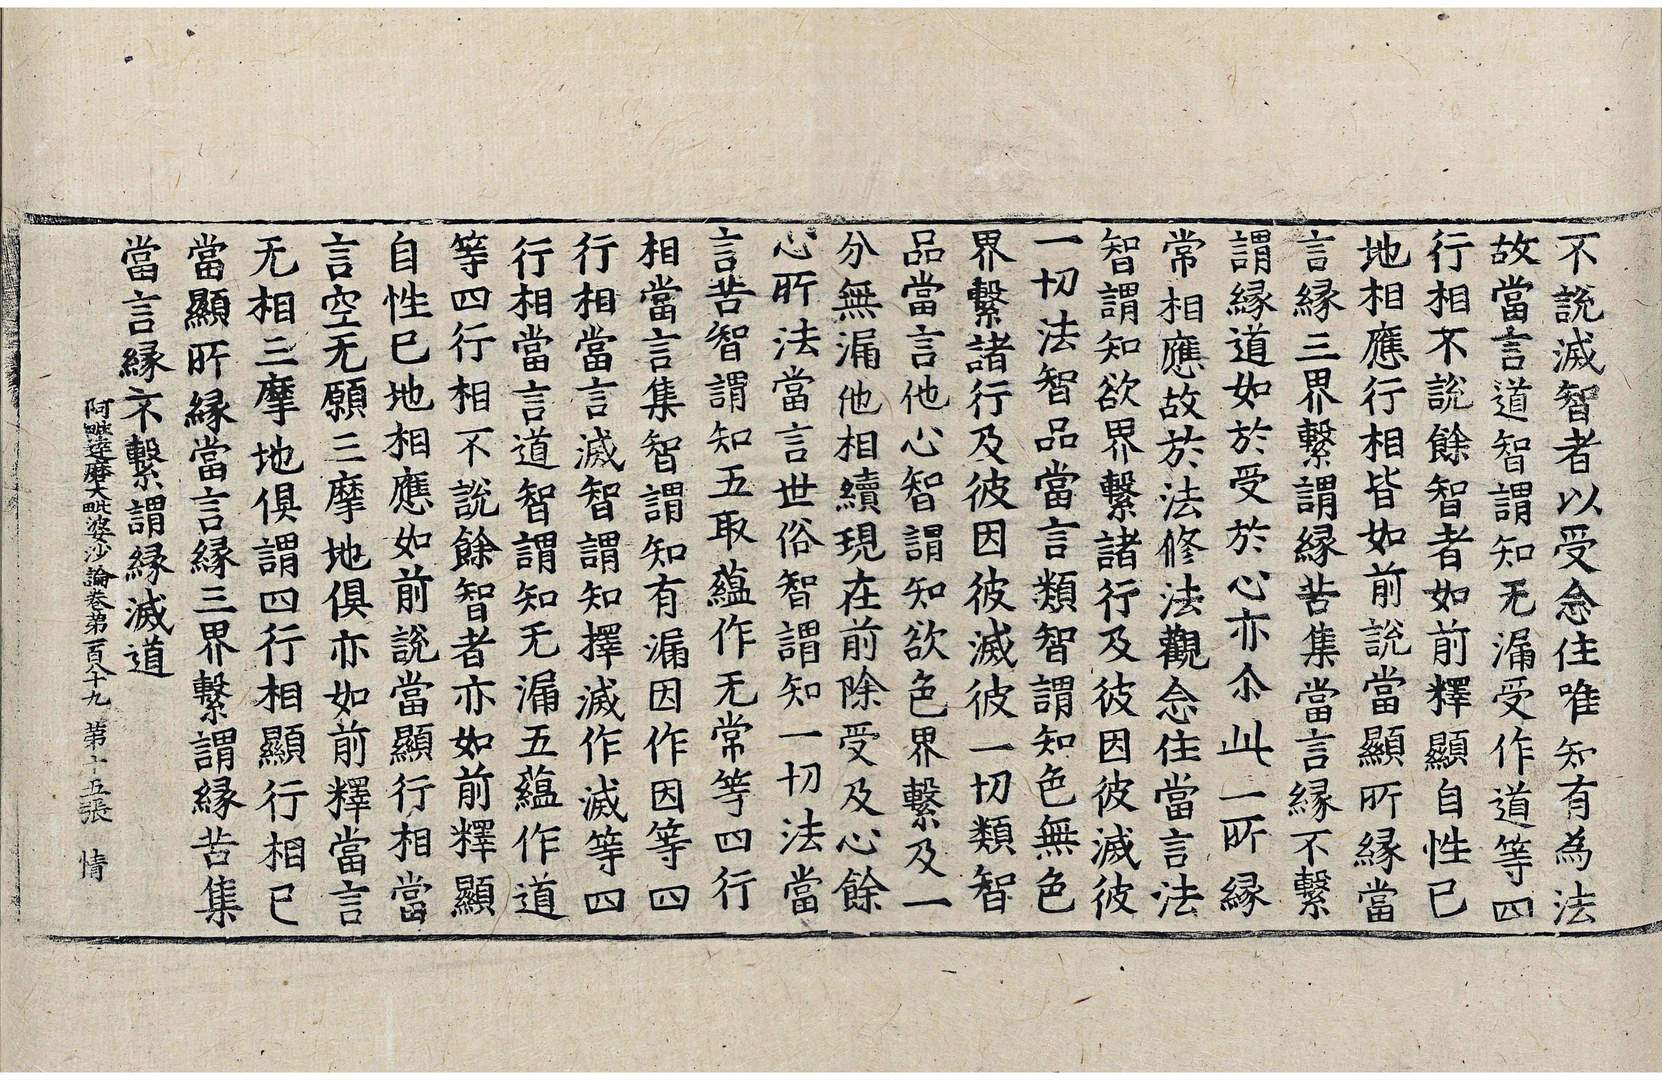 不說滅智者以受念住唯知有為法
故當言道智謂知无漏受作道等四
行相不說餘智者如前釋顯自性已
地相應行相皆如前說當顯所緣當
言緣三界繫謂緣苦集當言緣不繫
謂緣道如於受於心亦尒此一所緣
常相應故於法修法觀念住當言法
智謂知欲界繫諸行及彼因彼滅彼
一切法智品當言類智謂知色無色
界繫諸行及彼因彼滅彼一切類智
品當言他心智謂知欲色界繫及一
分無漏他相續現在前除受及心餘
心所法當言世俗智謂知一切法當
言苦智謂知五取蘊作无常等四行
相當言集智謂知有漏因作因等四
行相當言滅智謂知擇滅作滅等四
行相當言道智謂知无漏五蘊作道
等四行相不說餘智者亦如前釋顯
自性已地相應如前說當顯行相當
言空无願三摩地俱亦如前釋當言
无相三摩地俱謂四行相顯行相已
當顯所緣當言緣三界繫謂緣苦集
當言緣不繫謂緣滅道
阿毗達磨大毗婆沙論卷第一百八十九 第十五張 情